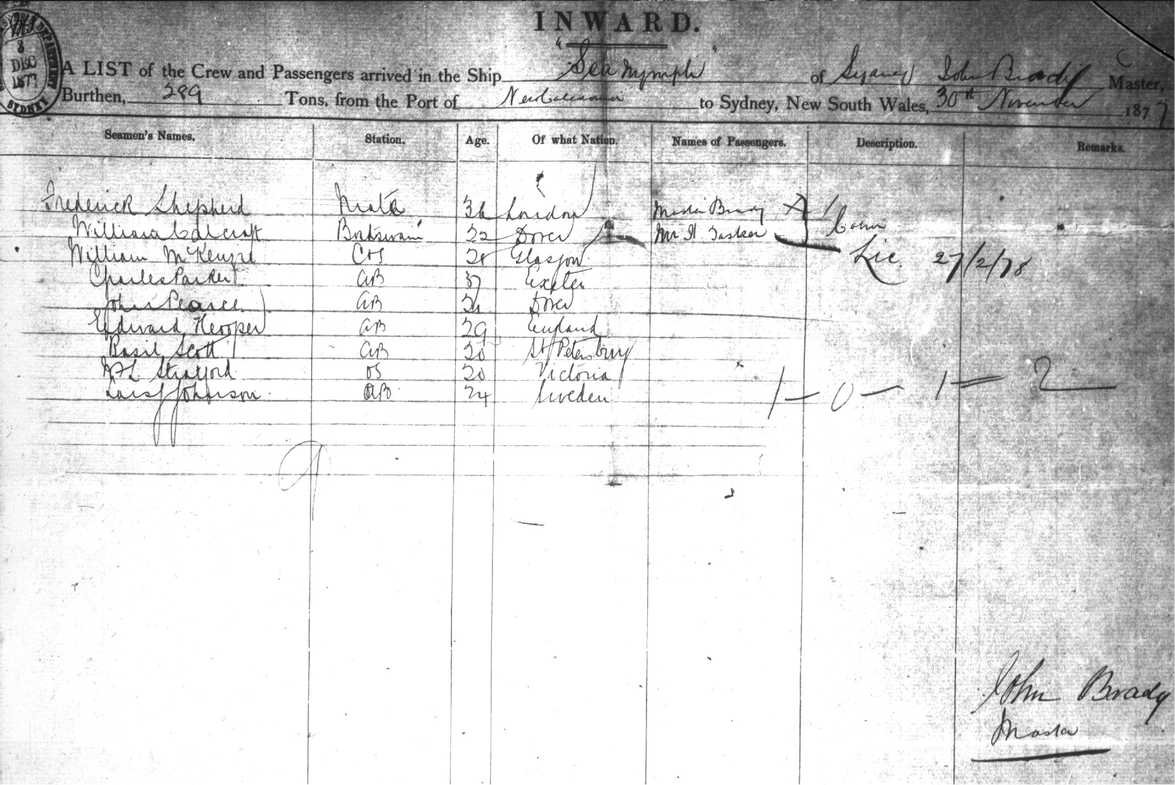 INWARD.
8
DEC
1877
SYDNEY
A LIST of the Crew and Passengers arrived in the Ship "Sea Nymph" of Sydney John Brady Master,
Burthen, 289 Tons, from the Port of New Caledonia to Sydney, New South Wales, 30th November 1877
Seamen's Names. Station. Age. Of what Nation. Names of Passengers. Description. Remarks.
Frederick Shepherd Mate London Master Brady
William Calcraft Boatswain 22 Dover Mr H Tasker Cabin
William McKenzie Glasgow Lic 27/2/78
Charles Parker AB 37 Exeter
John Pearce AB Dover
Edward Hooper AB 29 England
Basil Scott AB St Petersburg
Stratford OS 20 Victoria
1 - 0 - 1 = 2
Johnson AB 24 Sweden
9
John Brady
Master